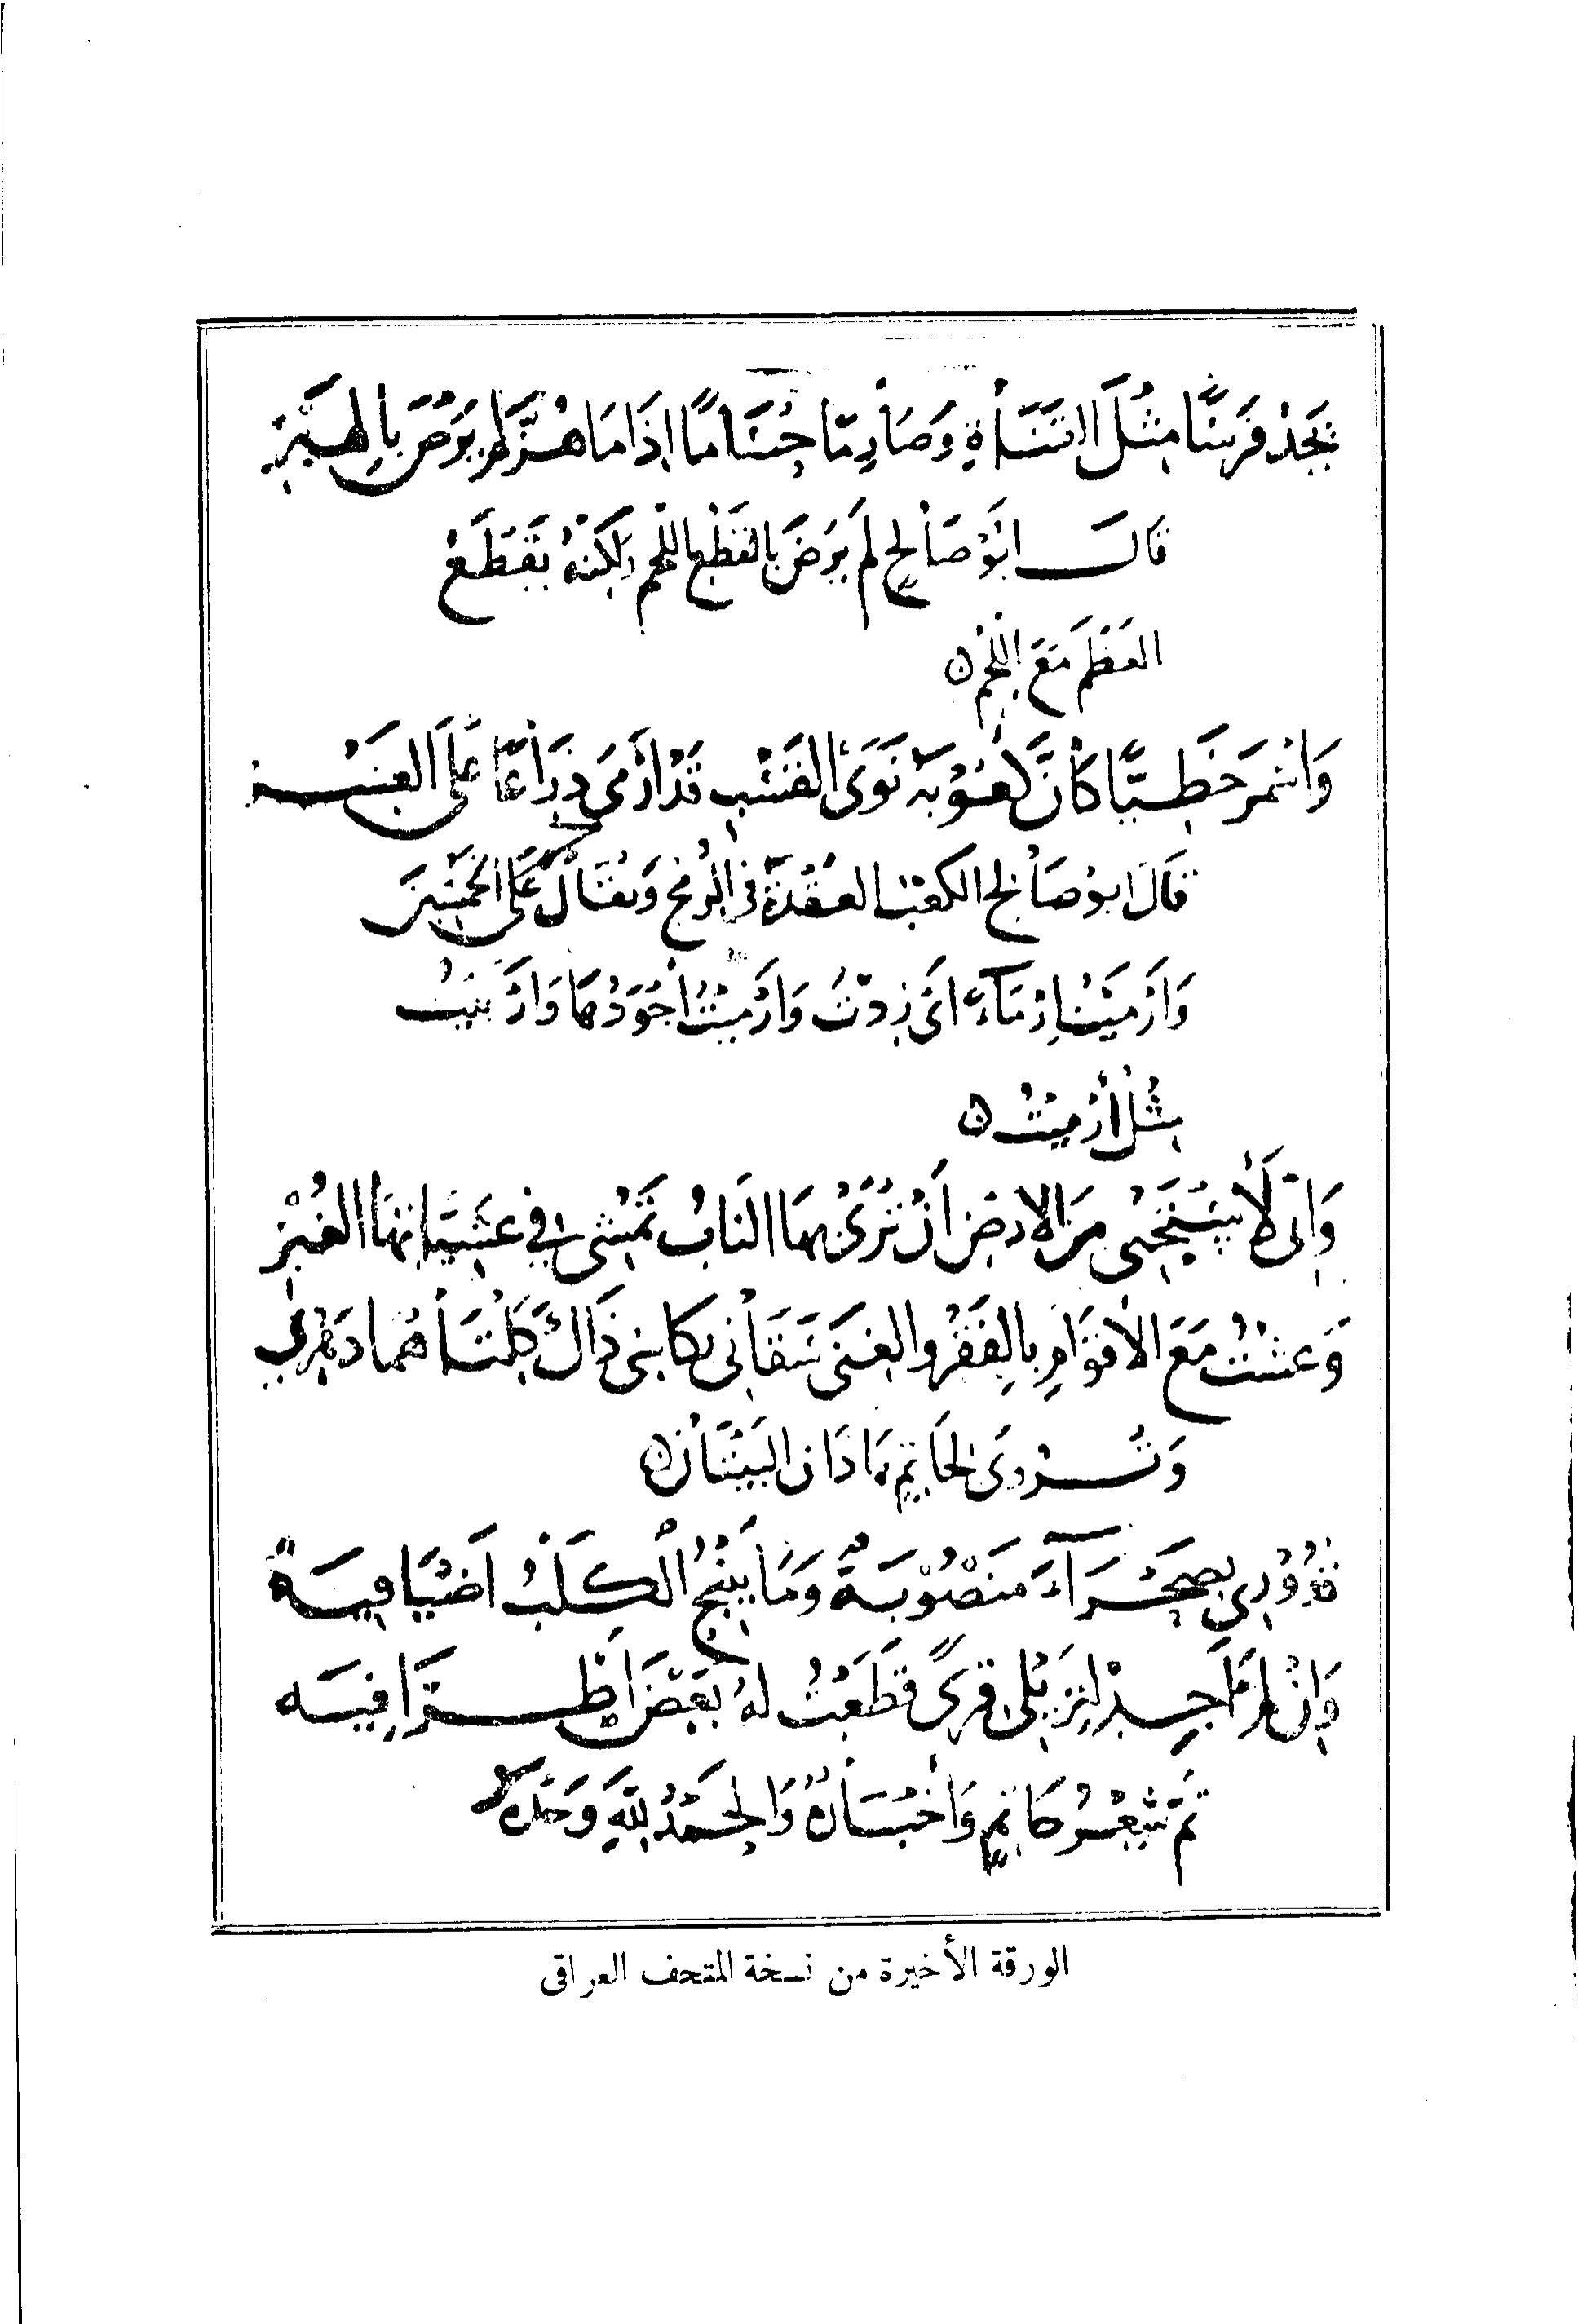 يَجِدْ فَرَسًا مِثْلَ القَنَاةِ وَصَارِمًا حُسَامًا إِذَا مَا هُزَّ لَمْ يَرْضَ بِالهَبْرِ
قَالَ ابُوْ صَالِحٍ لَمْ يَرْضَ بِالقَطْعِ اللَّحْمِ وَلَكِنَّهُ يَقْطَعُ
العَظْمَ مَعَ اللَّحْمِ ه
وَاسْمَرَ خَطِيًّا كَأَنَّ كُعُوْبَهُ نَوَى القَسْبِ قَدْ ارْمَى ذِرَاعًا عَلَى العَشْرِ
قَالَ ابُوْ صَالِحٍ الكَعْبُ العُقْدَةُ فِي الرُّمْحِ وَيُقَالُ عَلَى الخَمْسِيْنَ
وَارْمَيْتُ إِرْمَآءً اىْ زِدْتُ وَارْمَيْتُ أَجْوَدُهَا وَارْبَيْتُ
مِثْلُ أَرْمَيْتُ ه
وَانِّى لَأَسْتَحْيِى مِنَ الارضِ أَنْ تَرَى بِهَا النَابَ تَمْشِى فِي عَشِيَّاتِهَا الغُبْرِ
وَعِشْتُ مَعَ الأَقْوَامِ بِالفَقْرِ وَالغِنَى سَقَانِى بِكَأْسَىْ ذَاكَ كِلْتَاهُمَا دَهْرِى
وَتُرْوَى لِحَاتِمٍ هَاذَانِ البَيْتَانِ ه
قُدُوْرِى بِصَحْرَآءَ مَنْصُوْبَةٌ وَمَا يَنْبَحُ الكَلْبُ اَضْيَافِيَهْ
وَإِنْ لَمْ أَجِدْ لِنَزِيْلِى قِرًى قَطَعْتُ لَهُ بَعْضَ أَطْرَافِيَه
تَمَّ شِعْرُ حَاتِمٍ وَأَخْبَارُهُ وَالحَمْدُ لِلَّهِ وَحْدَهُ
الورقة الأخيرة من نسخة المتحف العراقى